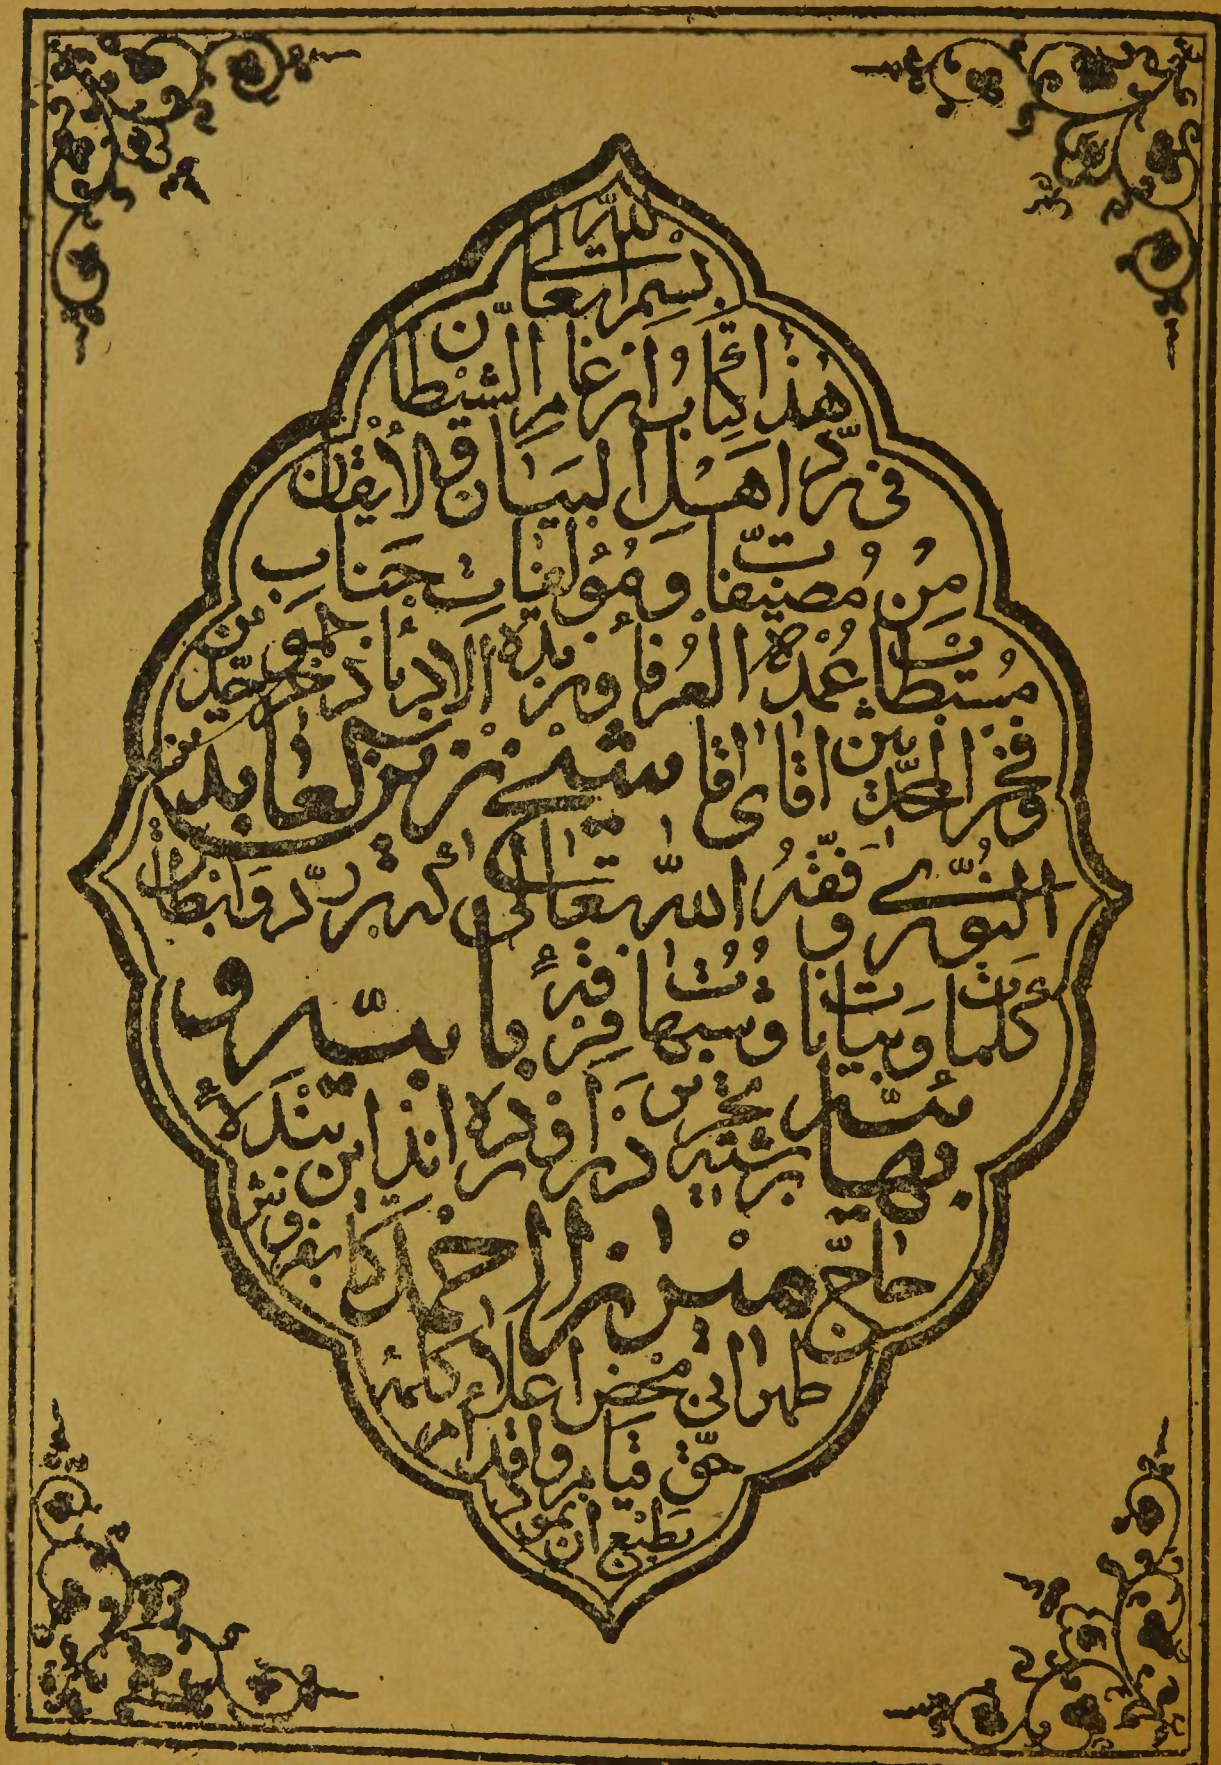 بسم الله تعالى
هذا كتاب ارغام الشيطان
في رد اهل البيان والايقان
من مصنفات ومؤلفات جناب
مستطاب عمدة العرفاء وزبدة الادباء ذخر
وفخر المحدثين اقاى اقا شيخ زين العابدين
النورى وفقه الله تعالى كه در رد وابطال
كلمات وبيانات وشبهات فرقهٔ بابيه و
بهائيه برشته تحرير در آورده اند اين بندهٔ
حاج ميرزا احمد كتابفروش
طهرانى محض اعلاء كلمهٔ
حق قيام واقدام
بطبع آن نمود